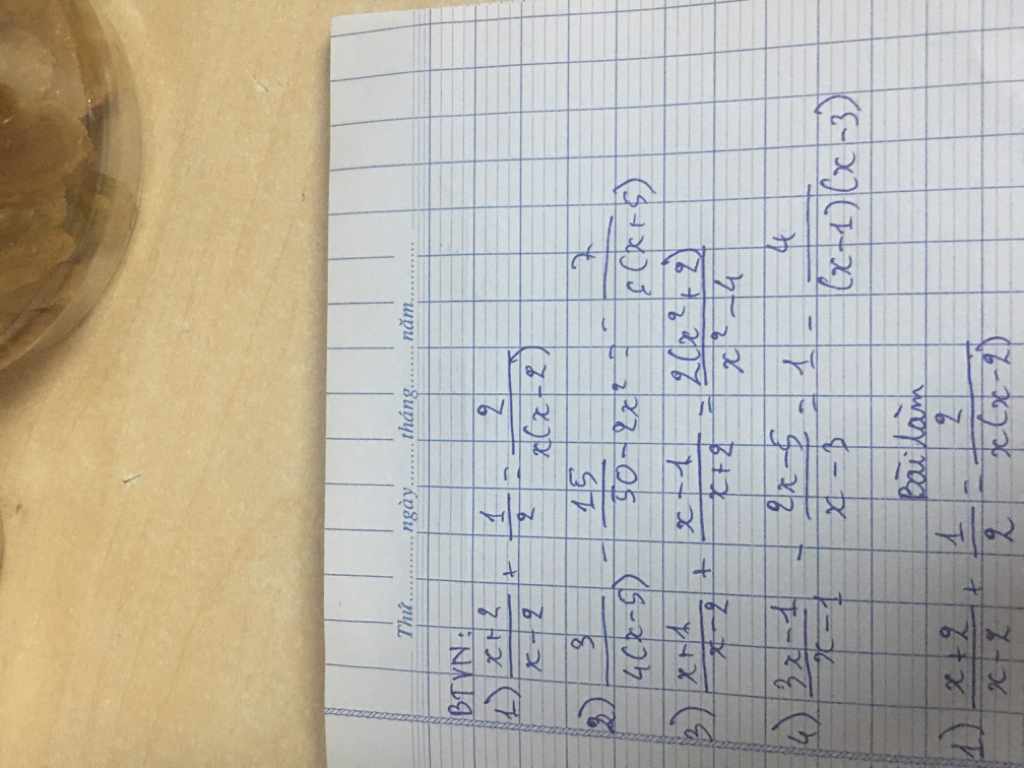 Thứ ........ ngày ........ tháng ........ năm ........
BTVN:
1) \frac{x+2}{x-2} + \frac{1}{2} = \frac{2}{x(x-2)}
2) \frac{3}{4(x-5)} - \frac{15}{50-2x^2} = - \frac{7}{6(x+5)}
3) \frac{x+1}{x-2} + \frac{x-1}{x+2} = \frac{2(x^2+2)}{x^2-4}
4) \frac{3x-1}{x-1} - \frac{2x-5}{x-3} = 1 - \frac{4}{(x-1)(x-3)}
Bài làm
1) \frac{x+2}{x-2} + \frac{1}{2} = \frac{2}{x(x-2)}